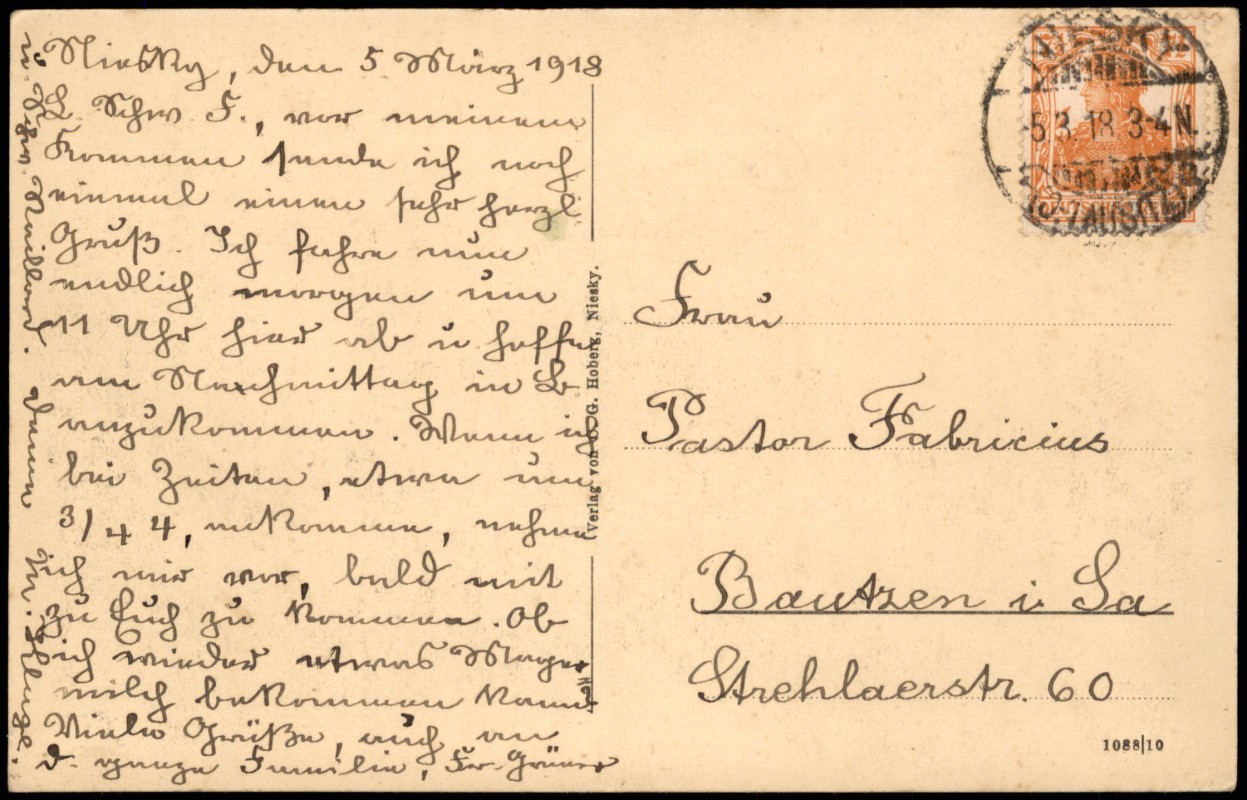 Niesky, den 5 März 1918
L. Schw F., vor meinem
Kommen sende ich noch
einmal einen sehr herzl
Gruß. Ich fahre nun
endlich morgen um
11 Uhr hier ab u hoffe
am Nachmittag in B
anzukommen. Wenn ich
bei Zeiten, etwa um
3/4 4, ankomme, nehme
ich mir vor, bald mit
zu Euch zu kommen. Ob
ich wieder etwas Mager
milch bekommen kann
Viele Grüße, auch an
d. ganze Familie, Fr.
u. Schw.
Deine
Verlag von C. G. Hoberg, Niesky.
NIESKY
5.3.18.3-4N.
LAUSITZ
Frau
Pastor Fabricius
Bautzen i. Sa
Strehlaerstr. 60
1088|10